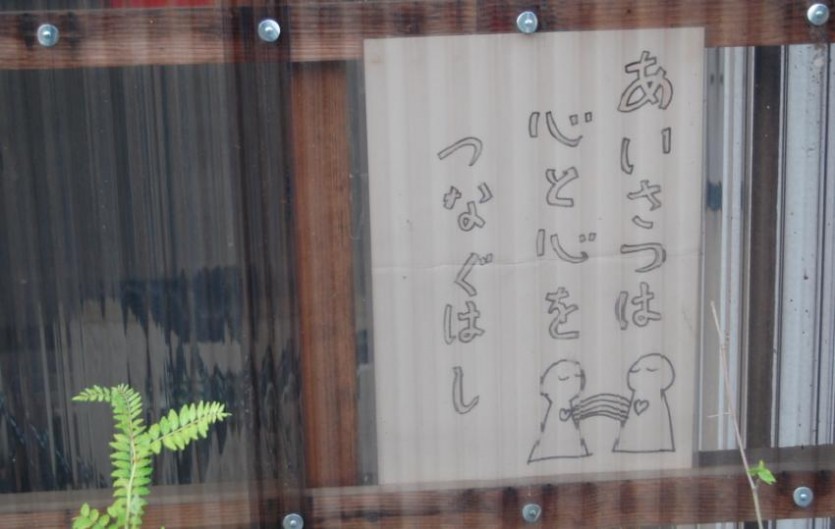 あいさつは
心と心を
つなぐはし